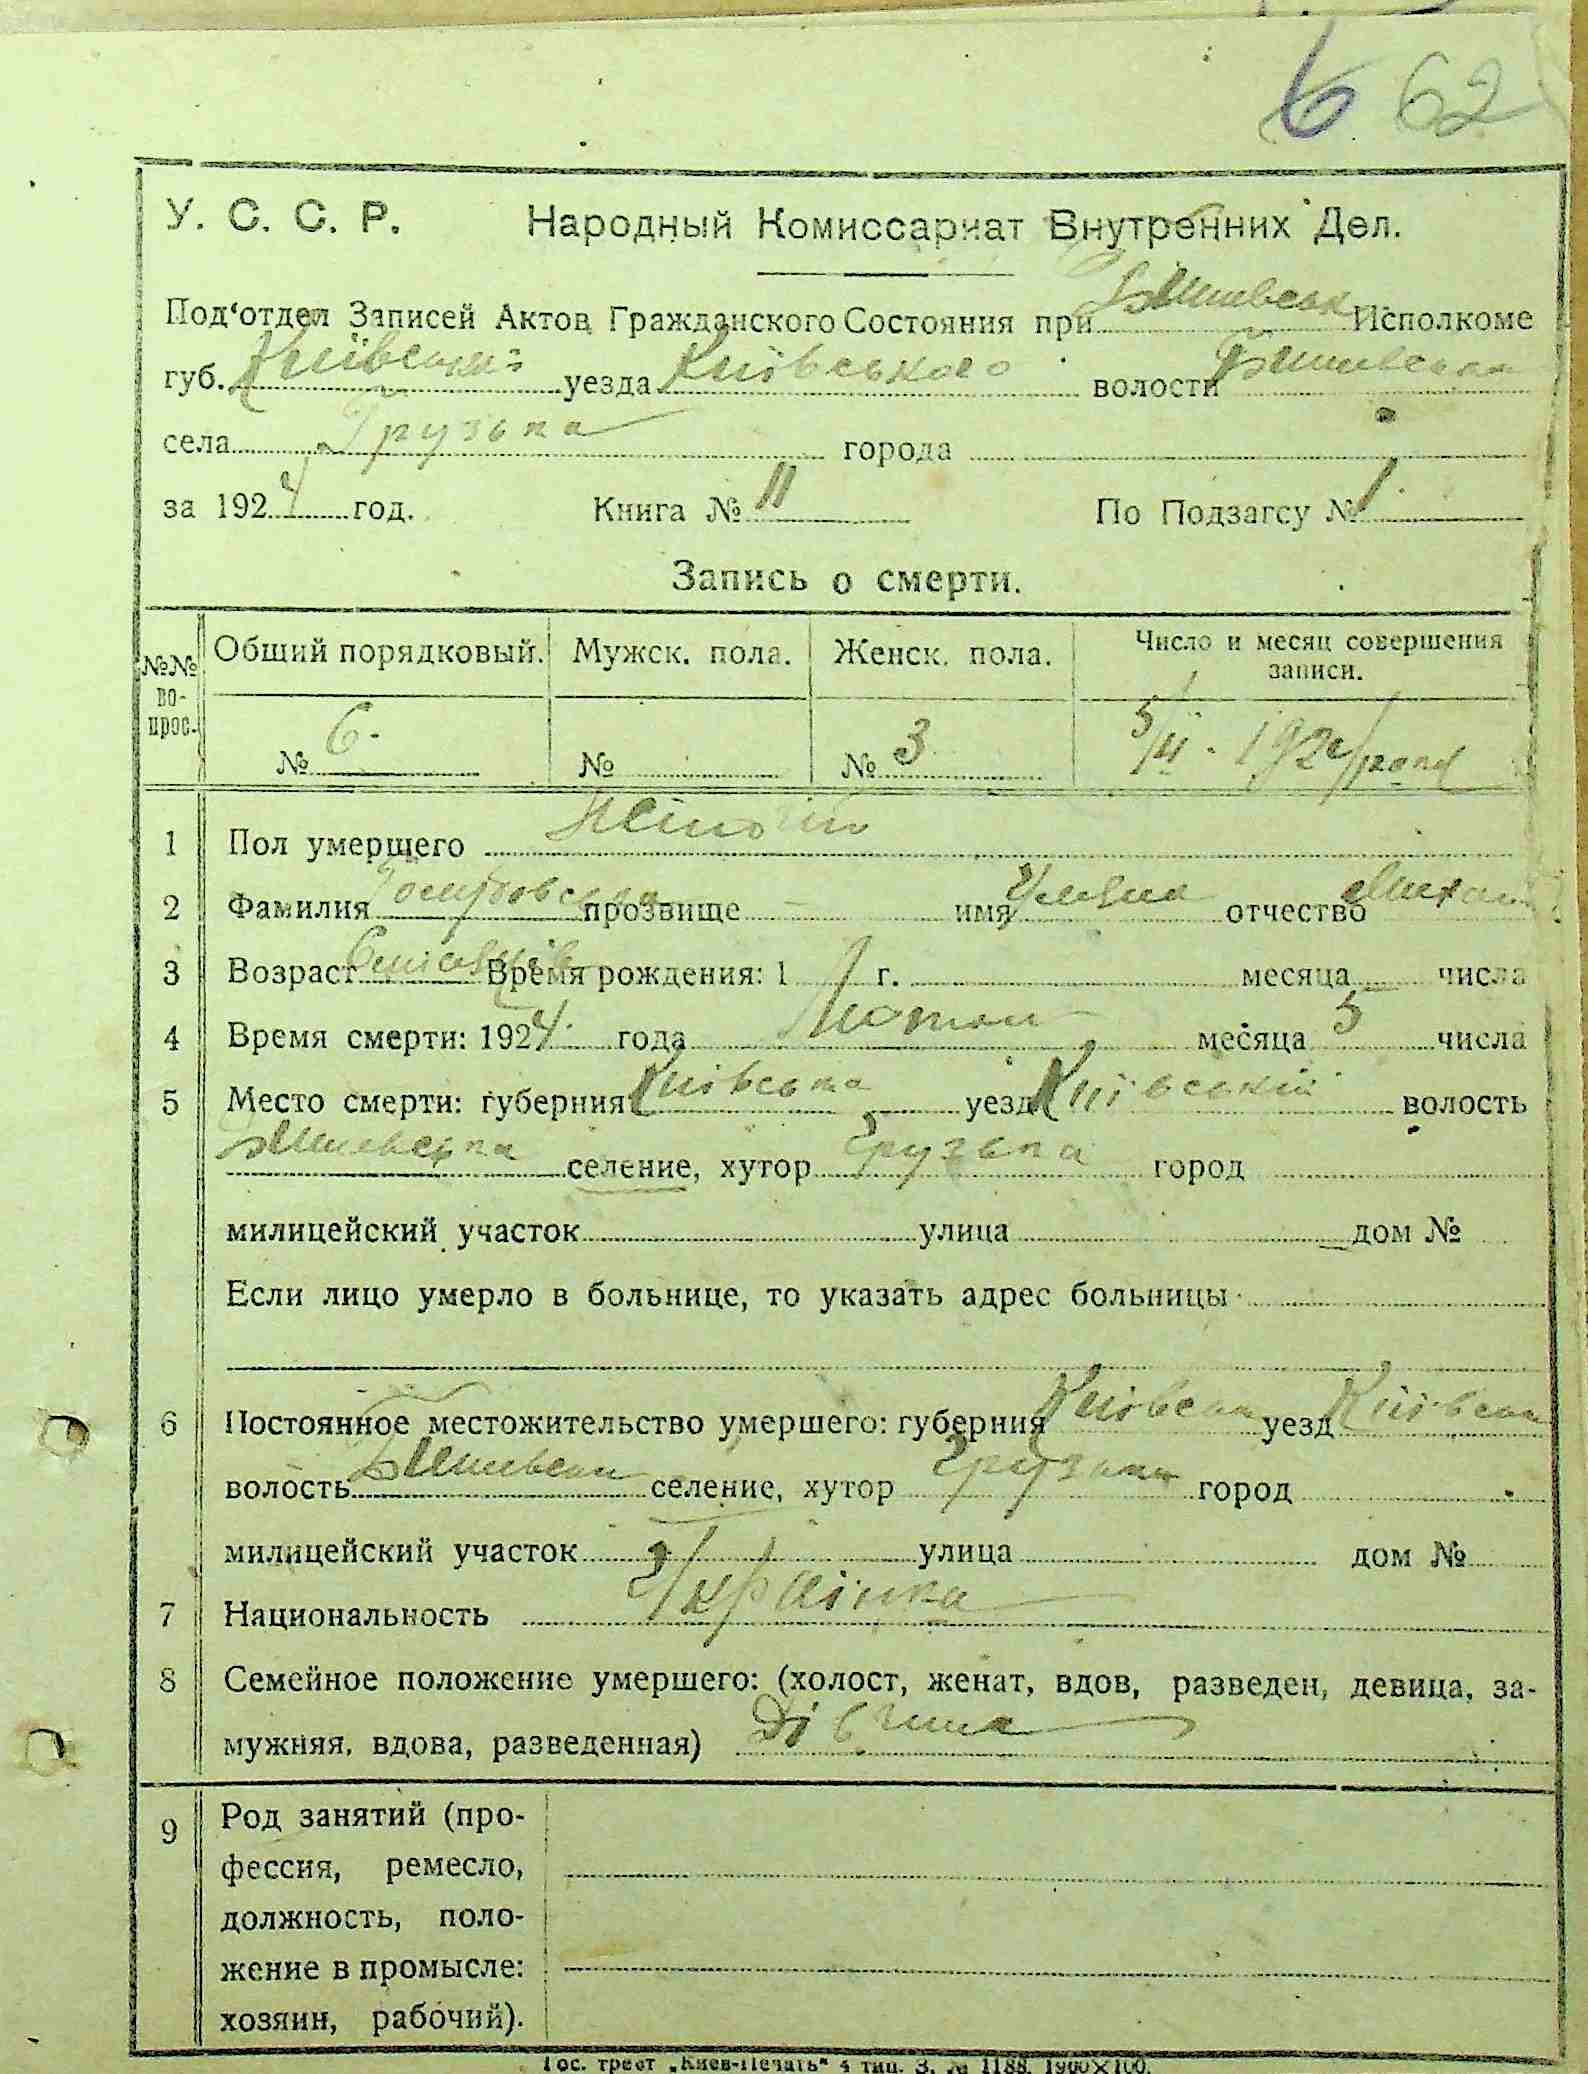 6 62
У. С. С. Р. Народный Комиссариат Внутренних Дел.
Под'отдел Записей Актов Гражданского Состояния при Бишивськ Исполкоме
губ. Київської уезда Київського волости Бишивська
села Грузька города
за 1924 год. Книга № 11 По Подзагсу № 1
Запись о смерти.
№№ во-прос. Общий порядковый. Мужск. пола. Женск. пола. Число и месяц совершения записи.
№ 6. № № 3 5/II. 1924 года
1 Пол умершего Жіночій
2 Фамилия прозвище имя отчество
3 Возраст 6 місяців Время рождения: 1 г. месяца числа
4 Время смерти: 1924 года Лютого месяца 5 числа
5 Место смерти: губерния Київська уезд Київський волость
Бишивська селение, хутор Грузька город
милицейский участок улица дом №
Если лицо умерло в больнице, то указать адрес больницы
6 Постоянное местожительство умершего: губерния Київськ уезд Київськ
волость Бишивськ селение, хутор Грузька город
милицейский участок улица дом №
7 Национальность Українка
8 Семейное положение умершего: (холост, женат, вдов, разведен, девица, за-
мужняя, вдова, разведенная) Дівчина
9 Род занятий (про-
фессия, ремесло,
должность, поло-
жение в промысле:
хозяин, рабочий).
Гос. трест „Киев-Печать“ 4 тип. З. № 1188. 1900×100.